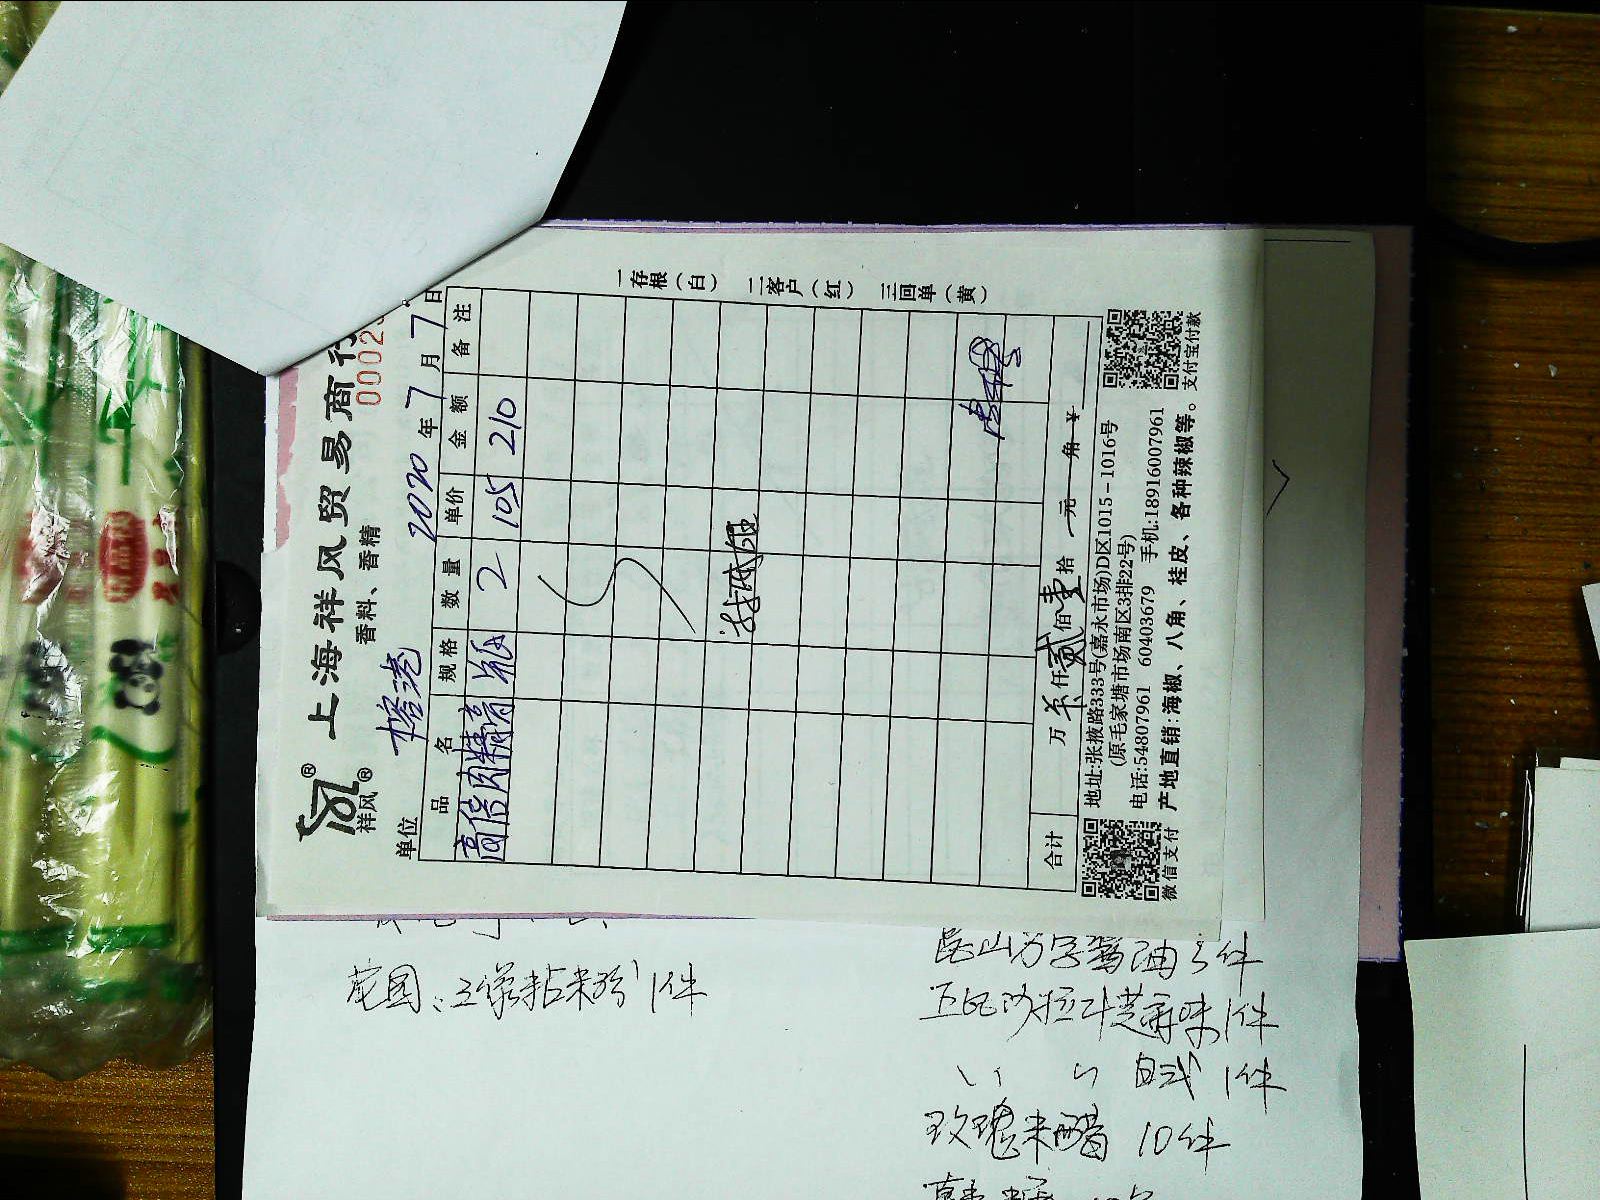 上海祥风贸易商行
香料、香精
00023
祥风®
单位 榕港 2020年7月7日
品名 规格 数量 单价 金额 备注
高倍肉精膏 瓶 2 105 210
合计 万 仟 贰佰壹拾 元 角 ¥
一存根（白） 二客户（红） 三回单（黄）
地址:张掖路333号(嘉永市场)D区1015-1016号
(原毛家塘市场南区3排22号)
电话:54807961 60403679 手机:18916007961
产地直销:海椒、八角、桂皮、各种辣椒等。
微信支付
支付宝付款
昆山万字酱油3件
1件
自式 1件
玫瑰米醋 10件
粘米粉1件